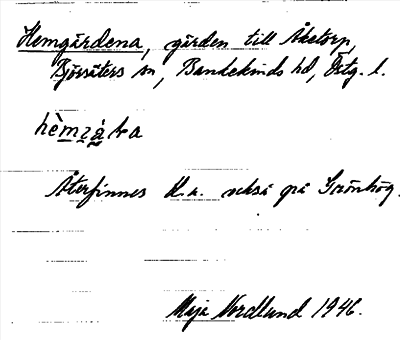 Hemgärdena, gärden till Åketorp,
Björsäters sn, Bankekinds hd, Östg. l.
Återfinnes bl.a. också på Grönhög.
Maja Nordlund 1946.